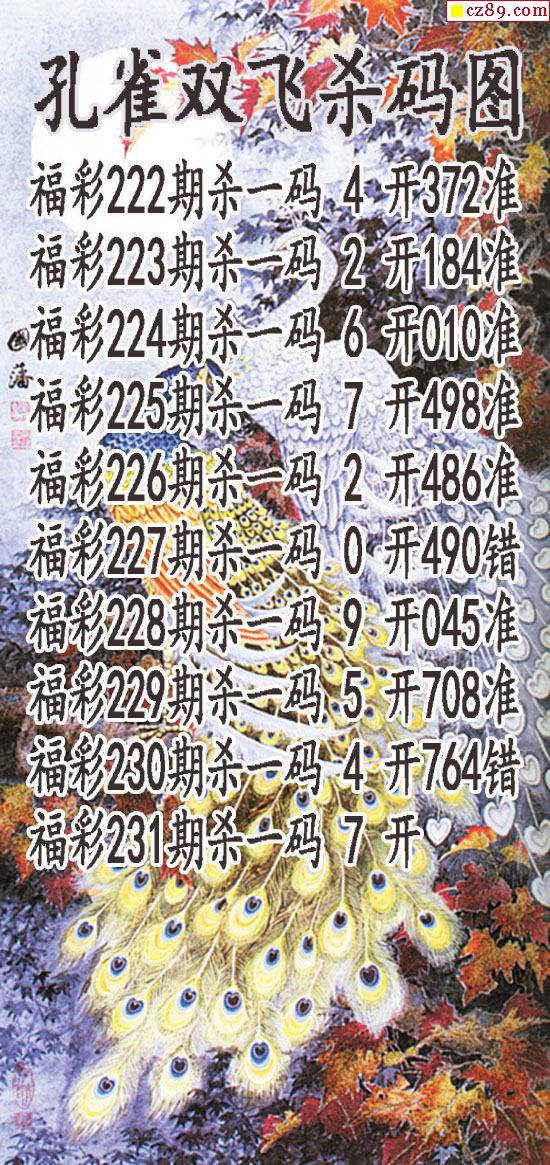 cz89.com
孔雀双飞杀码图
福彩222期杀一码 4 开372准
福彩223期杀一码 2 开184准
福彩224期杀一码 6 开010准
國藩
福彩225期杀一码 7 开498准
福彩226期杀一码 2 开486准
福彩227期杀一码 0 开490错
福彩228期杀一码 9 开045准
福彩229期杀一码 5 开708准
福彩230期杀一码 4 开764错
福彩231期杀一码 7 开